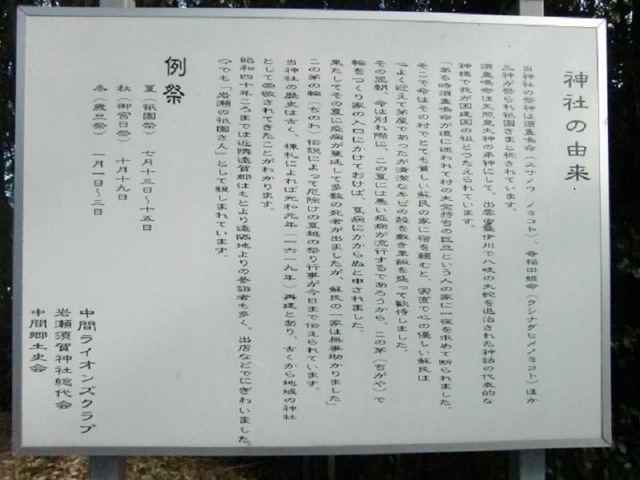 神社の由来
当神社の祭神は須盞嗚命(スサノウ ノミコト)、奇稲田姫命(クシナダヒメノミコト)ほか
三神が祭られ祇園さまと称されています。
須盞嗚命は天照皇大神の弟神にして、出雲の簸伊川で八岐の大蛇を退治された神話の代表的な
神様で我が国建国の祖とつたえられています。
「ある時須盞嗚命が道に迷われて村の大金持ちの巨旦という人の家に一夜を求めて断られました。
そこで命はその村でとても貧しい蘇民の家に宿を頼むと、実直で心の優しい蘇民は
心よく迎えて茅屋であったが清潔なキビの殻を敷き粟飯を盛って歓待しました。
その翌朝、命は別れ際に、この夏には悪い疫病が流行するであろうから、この茅(ちがや)で
輪をつくり家の入口にかけておけば、夏病にかからぬと申されました。
果たしてその夏に疫病が蔓延して多数の死者が出ましたが、蘇民の一家は無事助かりました」
この茅の輪(ちのわ)伝説によって厄除けの夏越の祭り行事が今日まで伝えられています。
当神社の歴史は古く、棟札によれば元和元年(一六一九年)再建とあり、古くから地域の神社
として崇敬されてきたことがわかります。
昭和四十年ころまでは近隣遠賀郡はもとより遠隔地よりの参詣者も多く、出店などでにぎわいました。
今でも「岩瀬の祇園さん」として親しまれています。
例祭
夏(祇園祭) 七月十三日〜十五日
秋(御宮日祭) 十月十九日
冬(歳旦祭) 一月一日〜三日
中間ライオンズクラブ
岩瀬須賀神社総代会
中間郷土史会